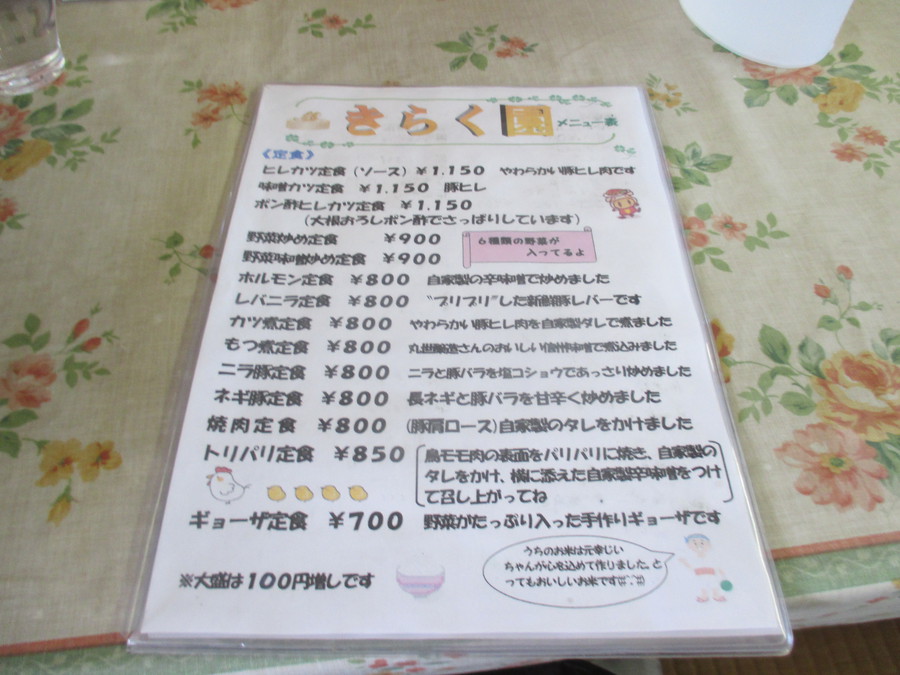 きらく園 メニュー表
《定食》
ヒレカツ定食(ソース) ¥1,150 やわらかい豚ヒレ肉です
味噌カツ定食 ¥1,150 豚ヒレ
ポン酢ヒレカツ定食 ¥1,150
(大根おろしポン酢でさっぱりしています)
野菜炒め定食 ¥900
野菜味噌炒め定食 ¥900
6種類の野菜が
入ってるよ
ホルモン定食 ¥800 自家製の辛味噌で炒めました
レバニラ定食 ¥800 “プリプリ”した新鮮豚レバーです
カツ煮定食 ¥800 やわらかい豚ヒレ肉を自家製ダレで煮ました
もつ煮定食 ¥800 丸世醸造さんのおいしい信州味噌で煮込みました
ニラ豚定食 ¥800 ニラと豚バラを塩コショウであっさり炒めました
ネギ豚定食 ¥800 長ネギと豚バラを甘辛く炒めました
焼肉定食 ¥800 (豚肩ロース)自家製のタレをかけました
トリパリ定食 ¥850 鳥モモ肉の表面をパリパリに焼き、自家製の
タレをかけ、横に添えた自家製辛味噌をつけ
て召し上がってね
ギョーザ定食 ¥700 野菜がたっぷり入った手作りギョーザです
※大盛は100円増しです
うちのお米は元幸じい
ちゃんが心を込めて作りました。と
ってもおいしいお米です